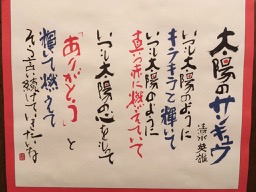 太陽のサンキュウ
清水英雄
いつも太陽のように
キラキラと輝いて
いつも太陽のように
真っ赤に燃えていて
いつも太陽の心をもって
「ありがとう」と
輝いて燃えて
そう言い続けていきたいね